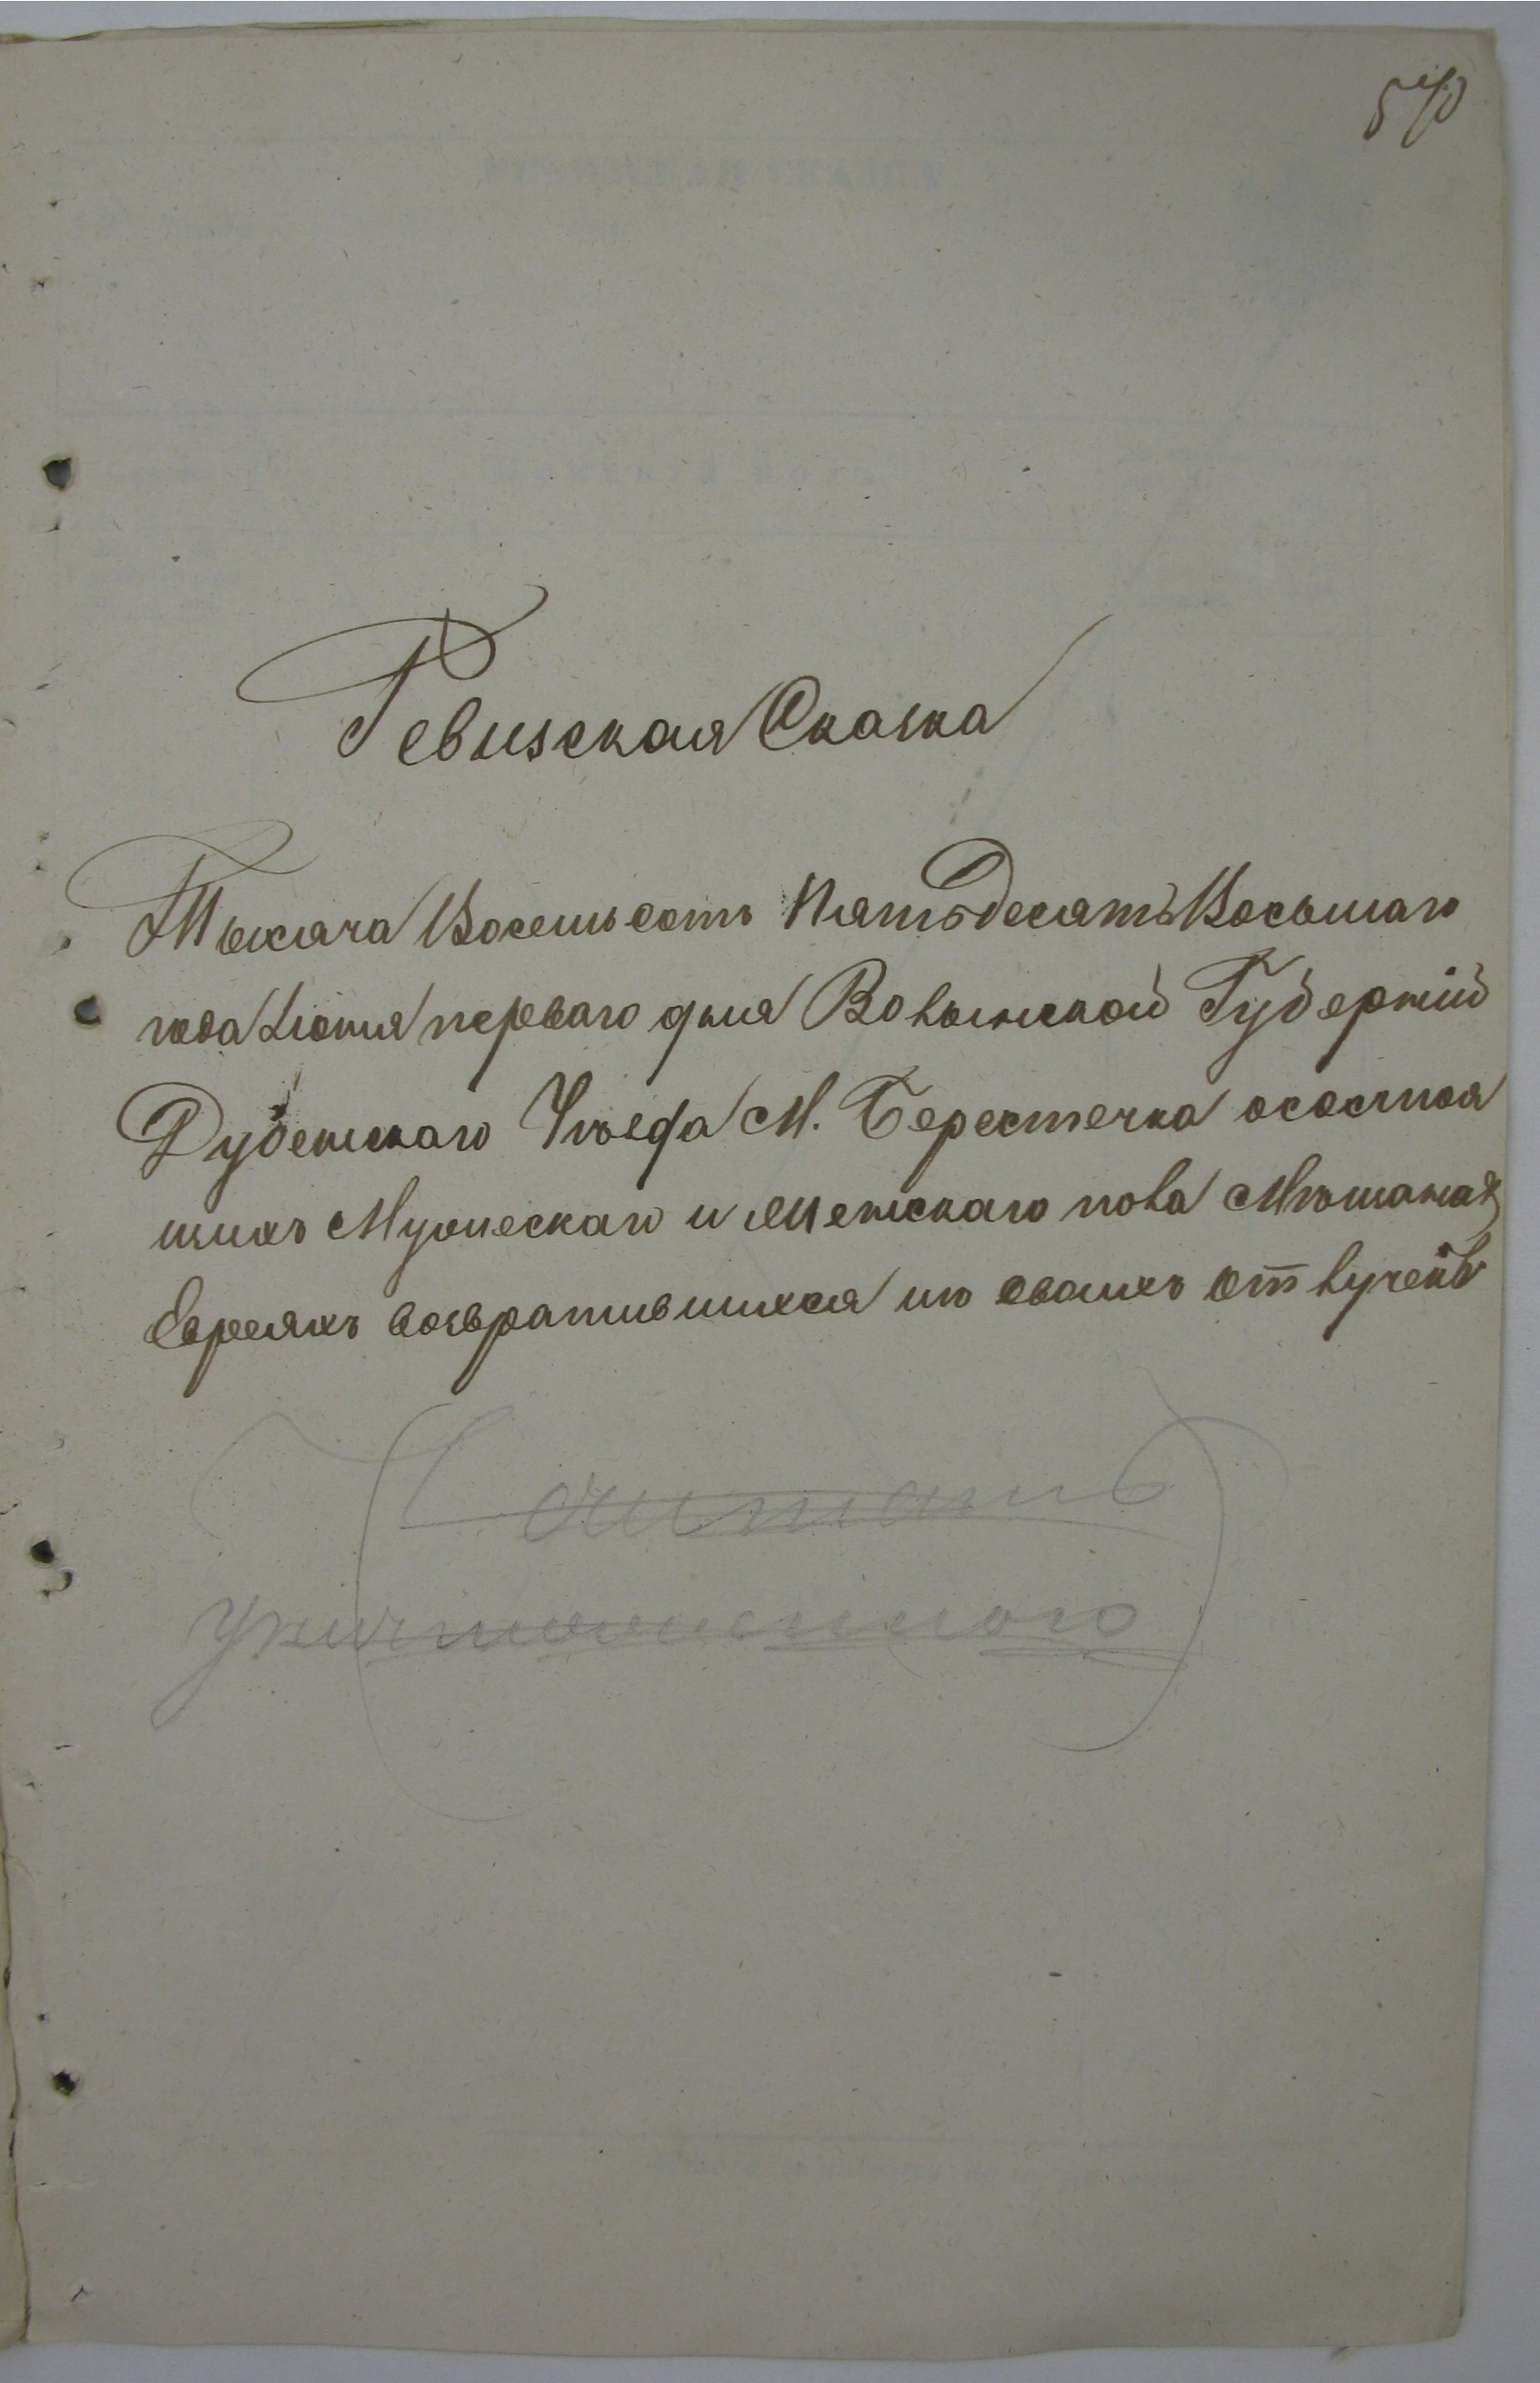 Ревизская Сказка
Тысяча Восемьсотъ Пятьдесятъ Восьмаго
года Іюня перваго дня Волынской Губерніи
Дубенскаго Уѣзда М. Берестечка осостоя
щихъ Мужескаго и Женскаго пола Мѣщанах
Евреяхъ возвратившихся изъ своихъ отлучекъ
Считать
уничтоженного